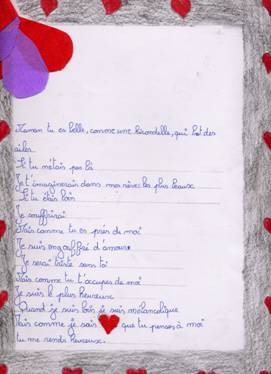 Maman tu es belle, comme une hirondelle, qui bat des
ailes
Si tu n'étais pas là
Je t'imaginerais dans mes rêves les plus beaux
Si tu étais loin
Je souffrirai
Mais comme tu es près de moi
Je suis engouffré d'amour
Je serai triste sans toi
Mais comme tu t'occupes de moi
Je suis le plus heureux
Quand je suis loin je suis mélancolique
Mais comme je sais que tu penses à moi
tu me rends heureux.